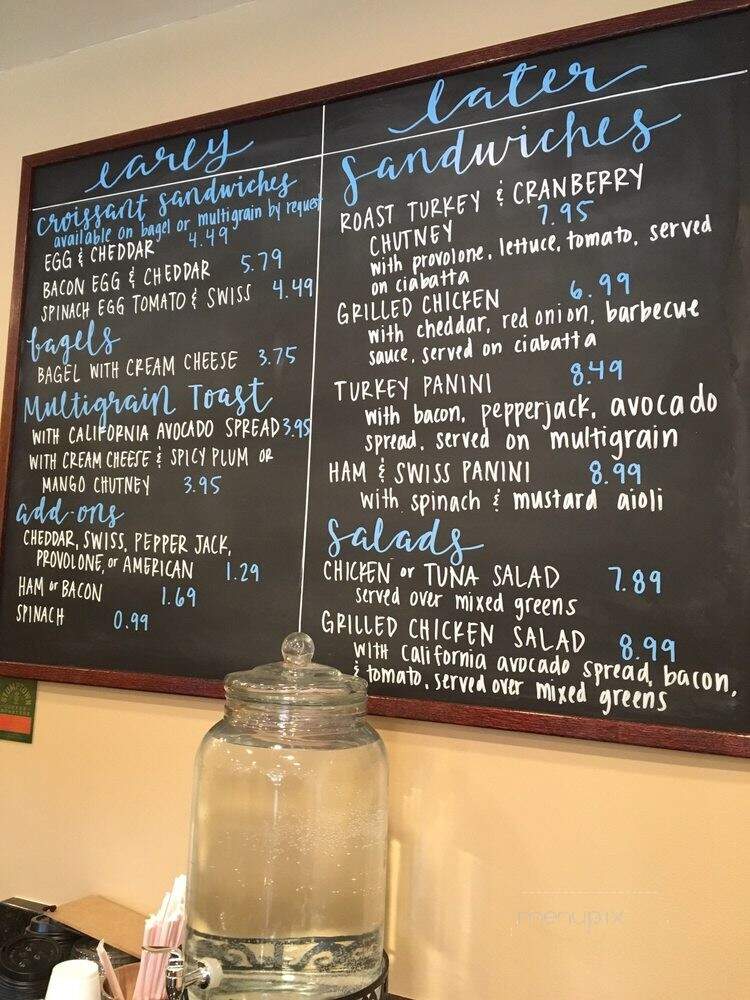 early
croissant sandwiches
available on bagel or multigrain by request
EGG & CHEDDAR 4.49
BACON EGG & CHEDDAR 5.79
SPINACH EGG TOMATO & SWISS 4.49
bagels
BAGEL WITH CREAM CHEESE 3.75
Multigrain Toast
WITH CALIFORNIA AVOCADO SPREAD 3.95
WITH CREAM CHEESE & SPICY PLUM OR
MANGO CHUTNEY 3.95
add-ons
CHEDDAR, SWISS, PEPPER JACK,
PROVOLONE, or AMERICAN 1.29
HAM or BACON 1.69
SPINACH 0.99
later
sandwiches
ROAST TURKEY & CRANBERRY
CHUTNEY 7.95
with provolone, lettuce, tomato, served
on ciabatta
GRILLED CHICKEN 6.99
with cheddar, red onion, barbecue
sauce, served on ciabatta
TURKEY PANINI 8.49
with bacon, pepperjack, avocado
spread, served on multigrain
HAM & SWISS PANINI 8.99
with spinach & mustard aioli
salads
CHICKEN or TUNA SALAD 7.89
served over mixed greens
GRILLED CHICKEN SALAD 8.99
WITH California avocado spread, bacon,
& tomato, served over mixed greens
menupix